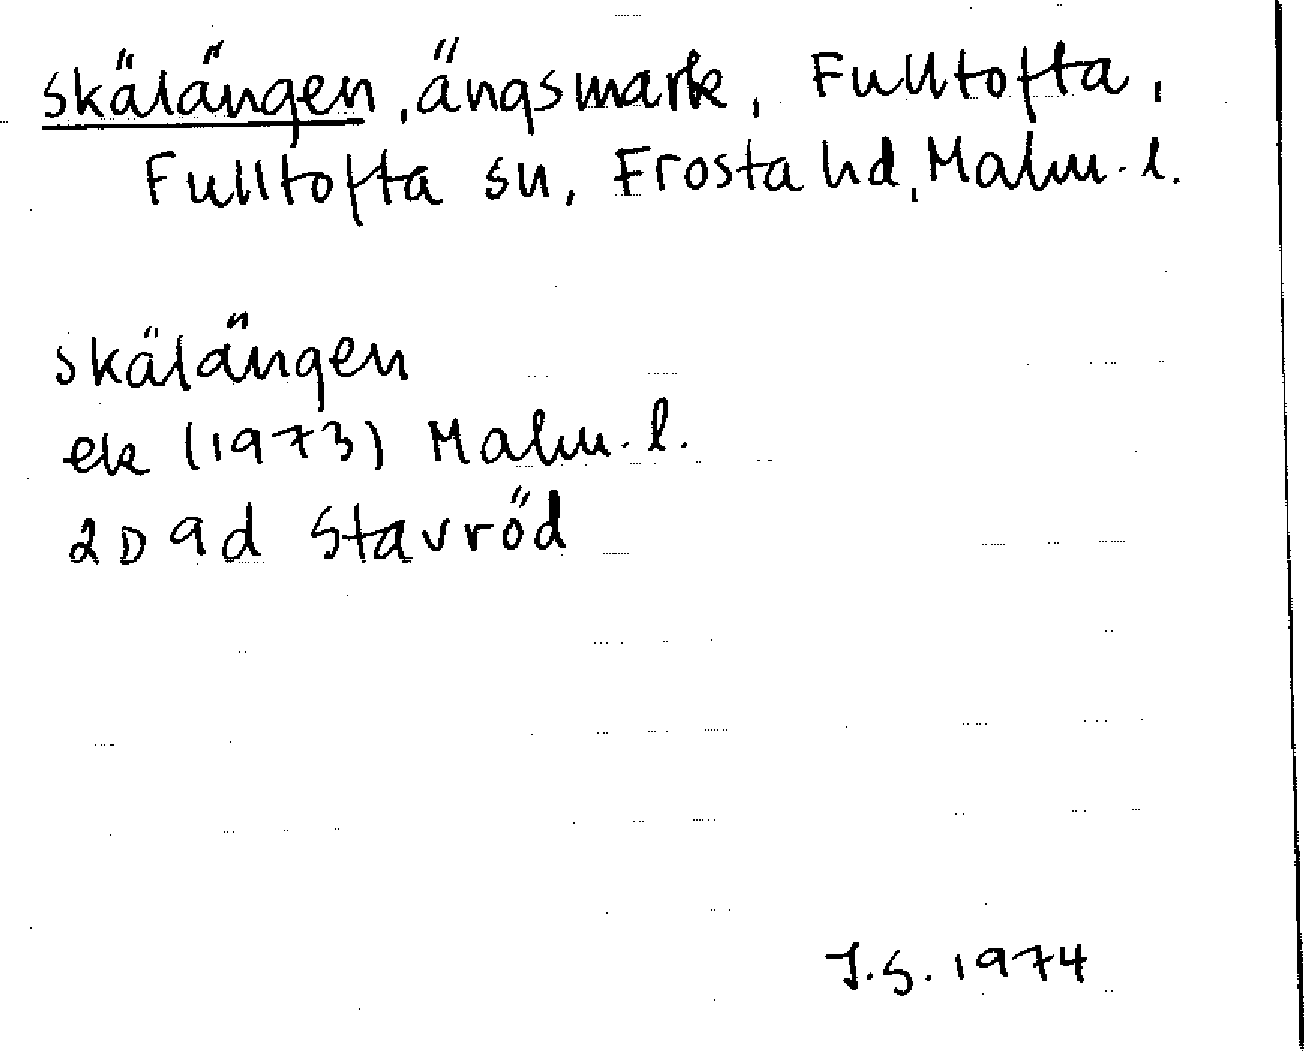 Skälängen, ängsmark, Fulltofta,
Fulltofta sn, Frosta hd, Malm. l.
Skälängen
ek (1973) Malm. l.
2D 9d Stavröd
I.S. 1974